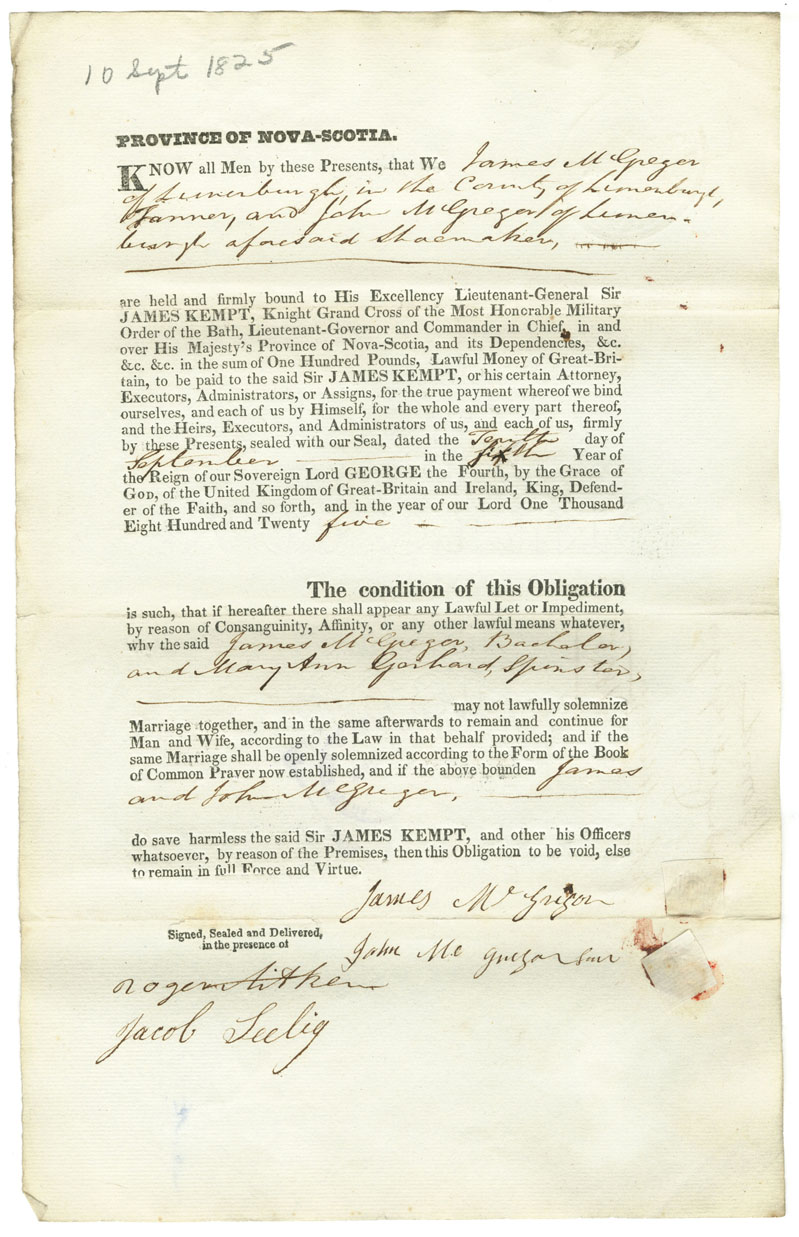 10 Sept 1825
PROVINCE OF NOVA-SCOTIA.
KNOW all Men by these Presents, that We James McGregor
of Lunenburgh, in the County of Lunenburgh,
Tanner, and John McGregor of Lunen-
burgh aforesaid Shoemaker,
are held and firmly bound to His Excellency Lieutenant-General Sir
JAMES KEMPT, Knight Grand Cross of the Most Honorable Military
Order of the Bath, Lieutenant-Governor and Commander in Chief, in and
over His Majesty's Province of Nova-Scotia, and its Dependencies, &c.
&c. &c. in the sum of One Hundred Pounds, Lawful Money of Great-Bri-
tain, to be paid to the said Sir JAMES KEMPT, or his certain Attorney,
Executors, Administrators, or Assigns, for the true payment whereof we bind
ourselves, and each of us by Himself, for the whole and every part thereof,
and the Heirs, Executors, and Administrators of us, and each of us, firmly
by these Presents, sealed with our Seal, dated the Tenth day of
September in the Year of
the Reign of our Sovereign Lord GEORGE the Fourth, by the Grace of
GOD, of the United Kingdom of Great-Britain and Ireland, King, Defend-
er of the Faith, and so forth, and in the year of our Lord One Thousand
Eight Hundred and Twenty five
The condition of this Obligation
is such, that if hereafter there shall appear any Lawful Let or Impediment,
by reason of Consanguinity, Affinity, or any other lawful means whatever,
why the said James McGregor, Bachelor,
and Mary Ann Gerhard, Spinster,
may not lawfully solemnize
Marriage together, and in the same afterwards to remain and continue for
Man and Wife, according to the Law in that behalf provided; and if the
same Marriage shall be openly solemnized according to the Form of the Book
of Common Prayer now established, and if the above bounden James
and John McGregor,
do save harmless the said Sir JAMES KEMPT, and other his Officers
whatsoever, by reason of the Premises, then this Obligation to be void, else
to remain in full Force and Virtue.
James McGrigor
Signed, Sealed and Delivered,
in the presence of
John Mc Gregor
Roger Aitken
Jacob Seelig